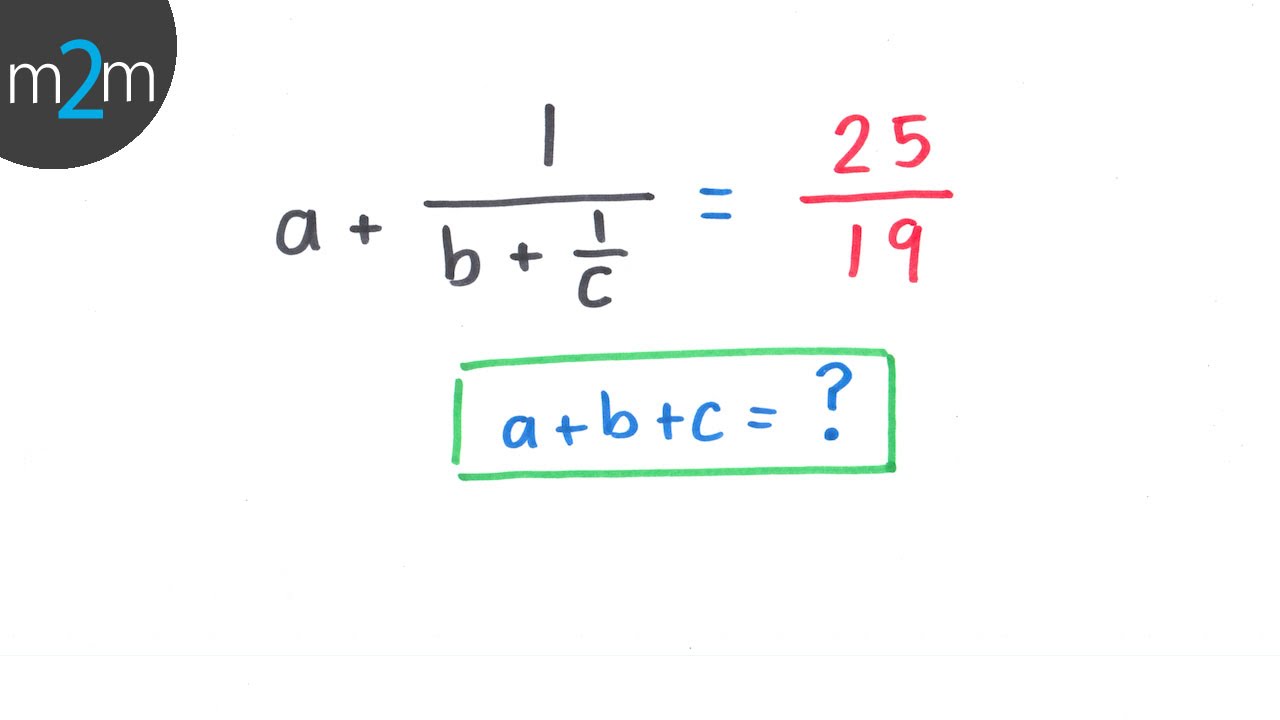 m2m
a + 1/(b + 1/c) = 25/19
a + b + c = ?